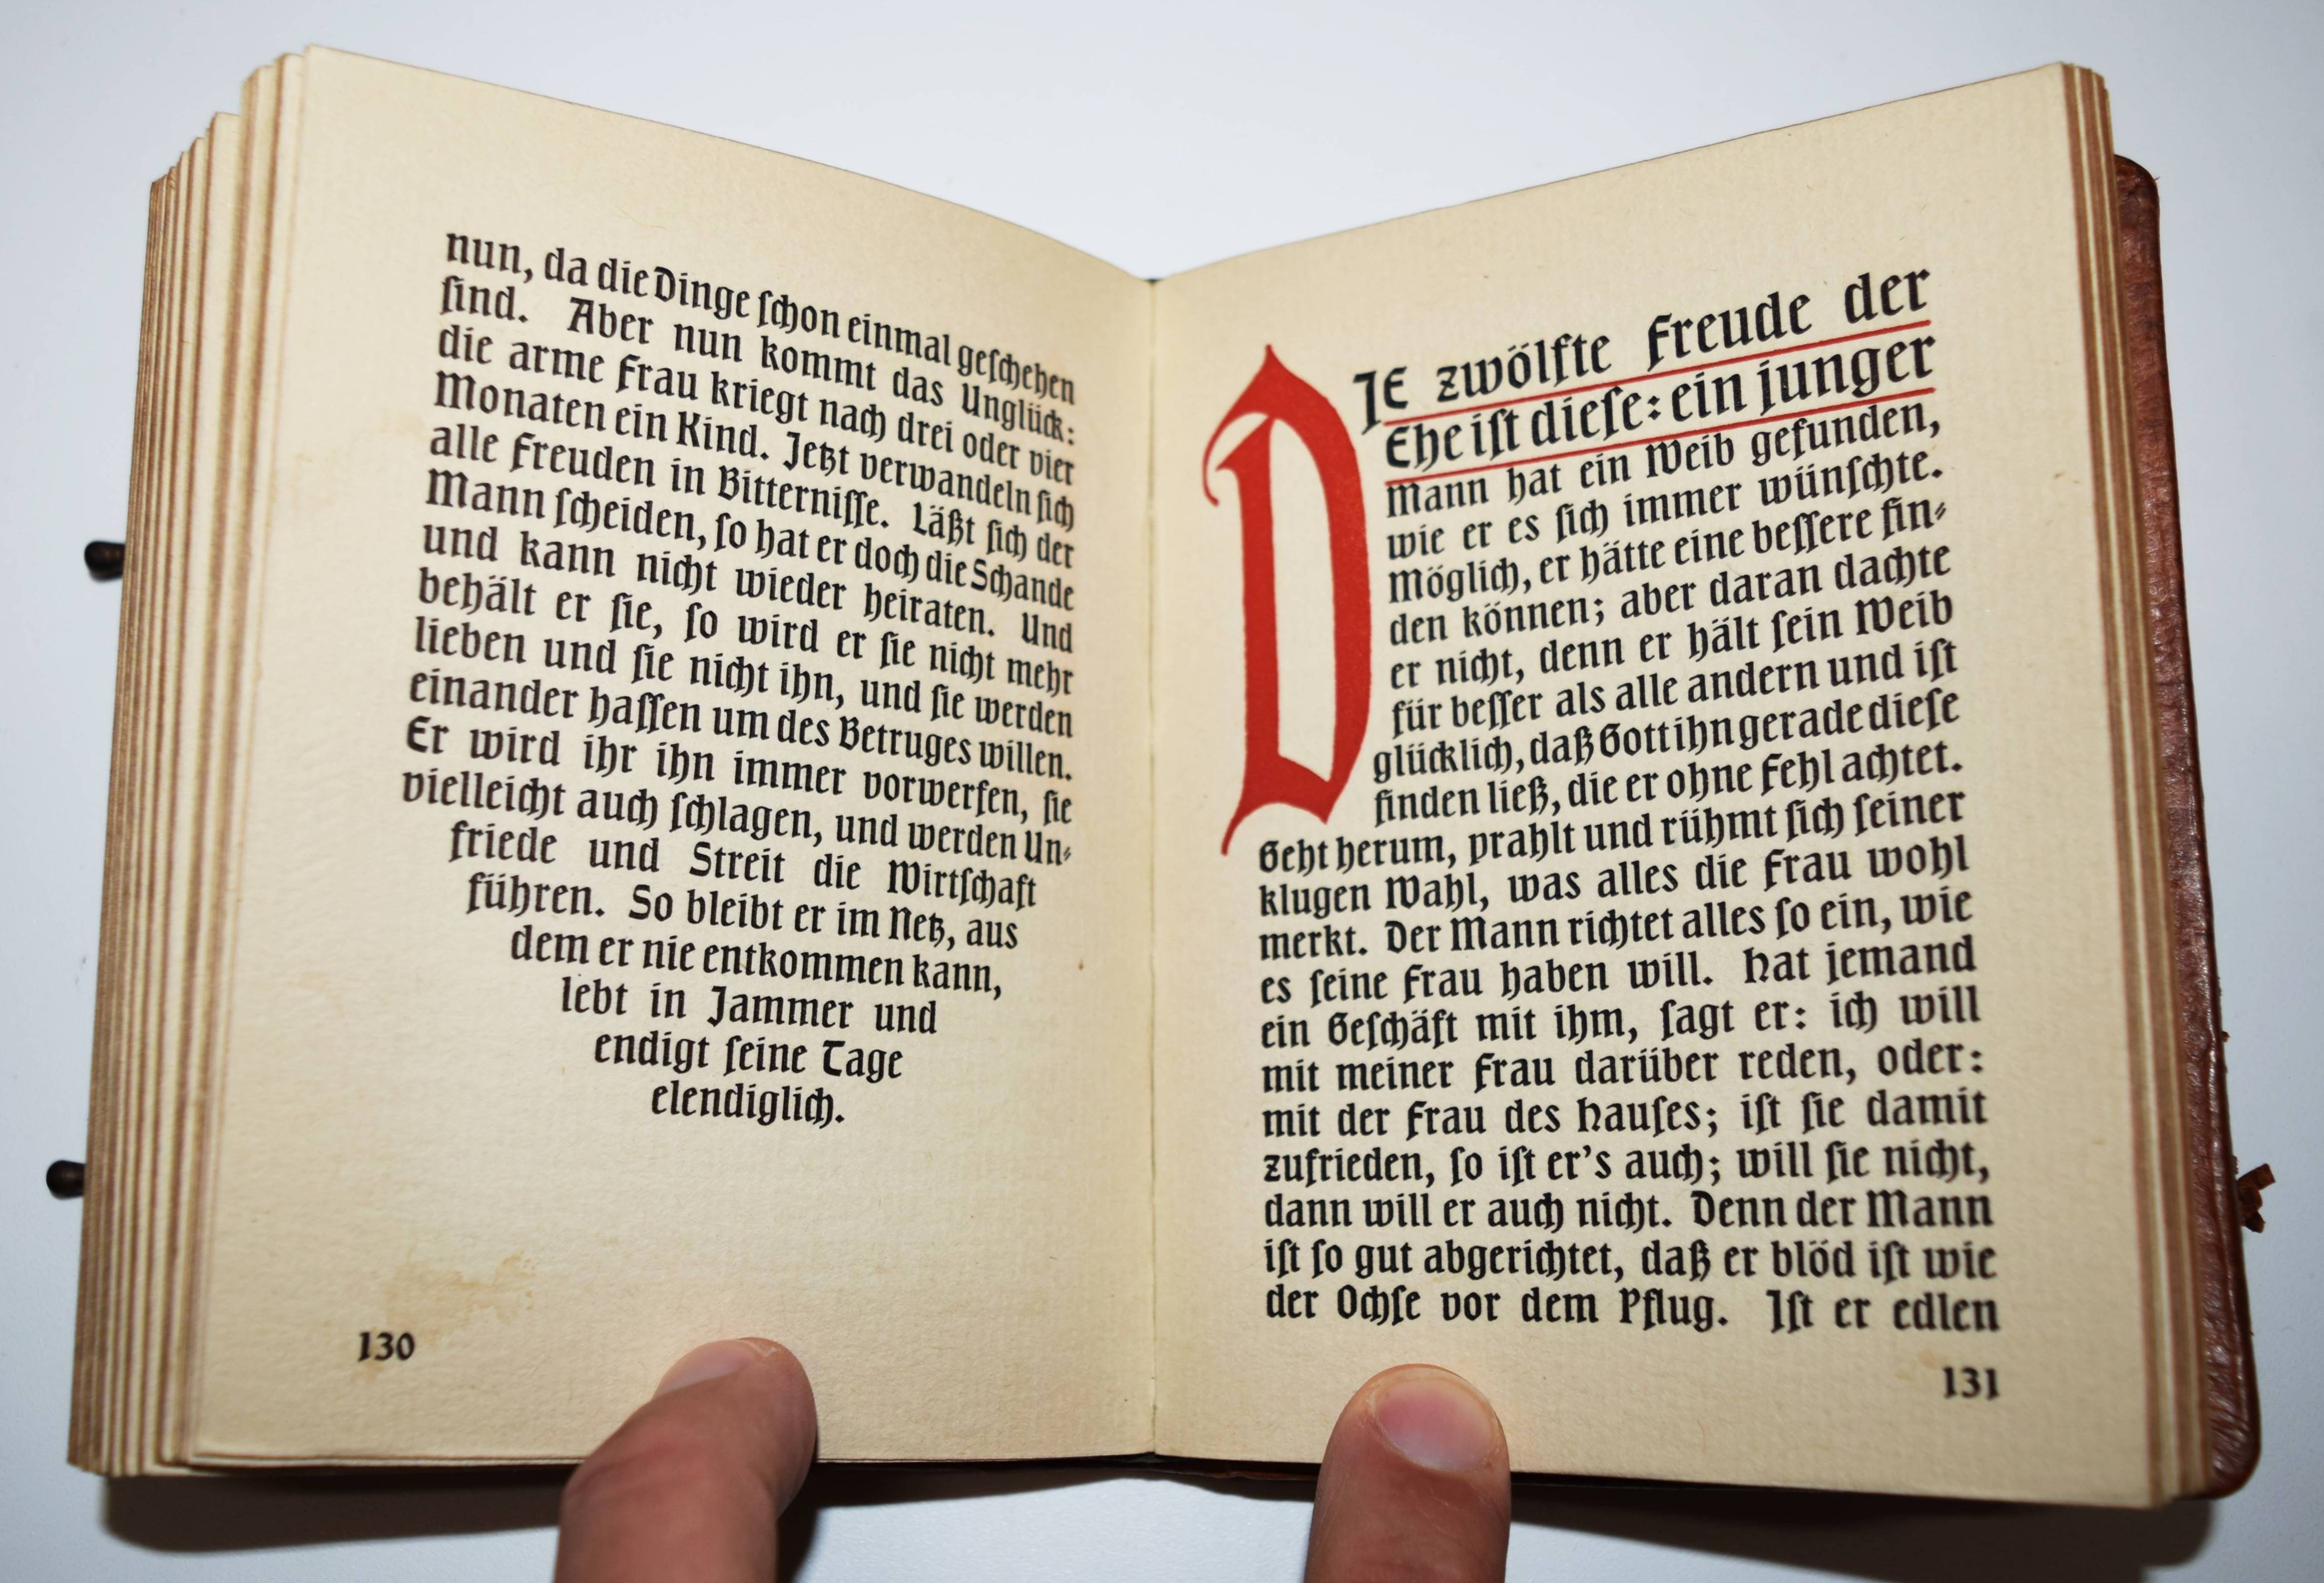 nun, da die Dinge ſchon einmal geſchehen
ſind. Aber nun kommt das Unglück:
die arme Frau kriegt nach drei oder vier
Monaten ein Kind. Jetzt verwandeln ſich
alle Freuden in Bitterniſſe. Läßt ſich der
Mann ſcheiden, ſo hat er doch die Schande
und kann nicht wieder heiraten. Und
behält er ſie, ſo wird er ſie nicht mehr
lieben und ſie nicht ihn, und ſie werden
einander haſſen um des Betruges willen.
Er wird ihr ihn immer vorwerfen, ſie
vielleicht auch ſchlagen, und werden Un-
friede und Streit die Wirtſchaft
führen. So bleibt er im Netz, aus
dem er nie entkommen kann,
lebt in Jammer und
endigt ſeine Tage
elendiglich.
130
DIE zwölfte Freude der
Ehe iſt dieſe: ein junger
Mann hat ein Weib gefunden,
wie er es ſich immer wünſchte.
Möglich, er hätte eine beſſere fin-
den können; aber daran dachte
er nicht, denn er hält ſein Weib
für beſſer als alle andern und iſt
glücklich, daß Gott ihn gerade dieſe
finden ließ, die er ohne Fehl achtet.
Geht herum, prahlt und rühmt ſich ſeiner
klugen Wahl, was alles die Frau wohl
merkt. Der Mann richtet alles ſo ein, wie
es ſeine Frau haben will. Hat jemand
ein Geſchäft mit ihm, ſagt er: ich will
mit meiner Frau darüber reden, oder:
mit der Frau des Hauſes; iſt ſie damit
zufrieden, ſo iſt er's auch; will ſie nicht,
dann will er auch nicht. Denn der Mann
iſt ſo gut abgerichtet, daß er blöd iſt wie
der Ochſe vor dem Pflug. Iſt er edlen
131